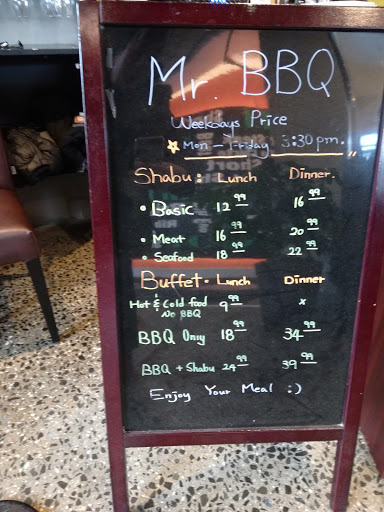 Mr. BBQ
Weekdays Price
Mon - Friday 3:30 pm.
Shabu: Lunch Dinner.
• Basic 12.99 16.99
• Meat 16.99 20.99
• Seafood 18.99 22.99
Buffet • Lunch Dinner
Hot & Cold food 9.99 x
No BBQ
BBQ Only 18.99 34.99
BBQ + Shabu 24.99 39.99
Enjoy Your Meal :)